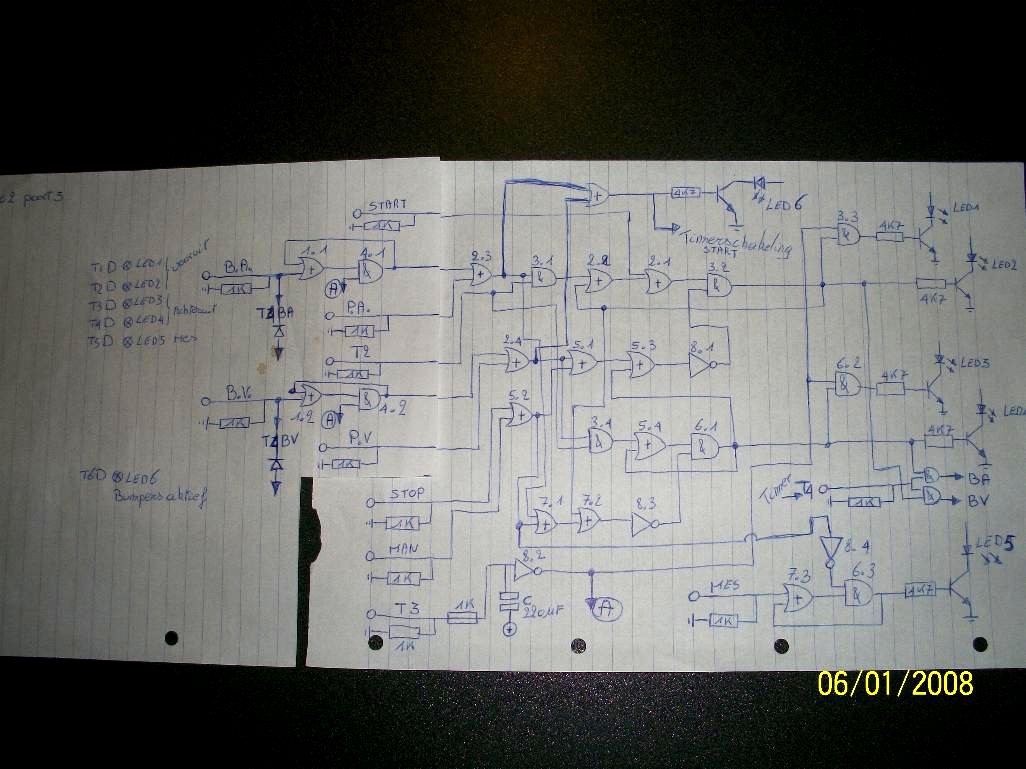 START
4K7
LED6
Timerschakeling
START
3.3
4K7
LED1
1K
T1D ⊗ LED1
T2D ⊗ LED2
T3D ⊗ LED3
T4D ⊗ LED4
T5D ⊗ LED5 Mes
1.1
4.1
&
A
B.A.
1K
BA
2.3
+
3.1
&
2.2
+
2.1
+
3.2
&
LED2
4K7
P.A.
1K
T2
1K
2.4
+
5.1
+
5.3
+
8.1
6.2
&
4K7
LED3
B.V.
1K
1.2
+
4.2
&
A
BV
5.2
+
P.V
1K
3.4
&
5.4
+
6.1
&
4K7
T6D ⊗ LED6
Bumpers aktief
STOP
1K
7.1
+
7.2
+
8.3
Timer
1K
&
BA
&
BV
MAN
1K
8.2
8.4
LED5
T3
1K
1K
C
220µF
A
MES
1K
7.3
+
6.3
&
4K7
06/01/2008